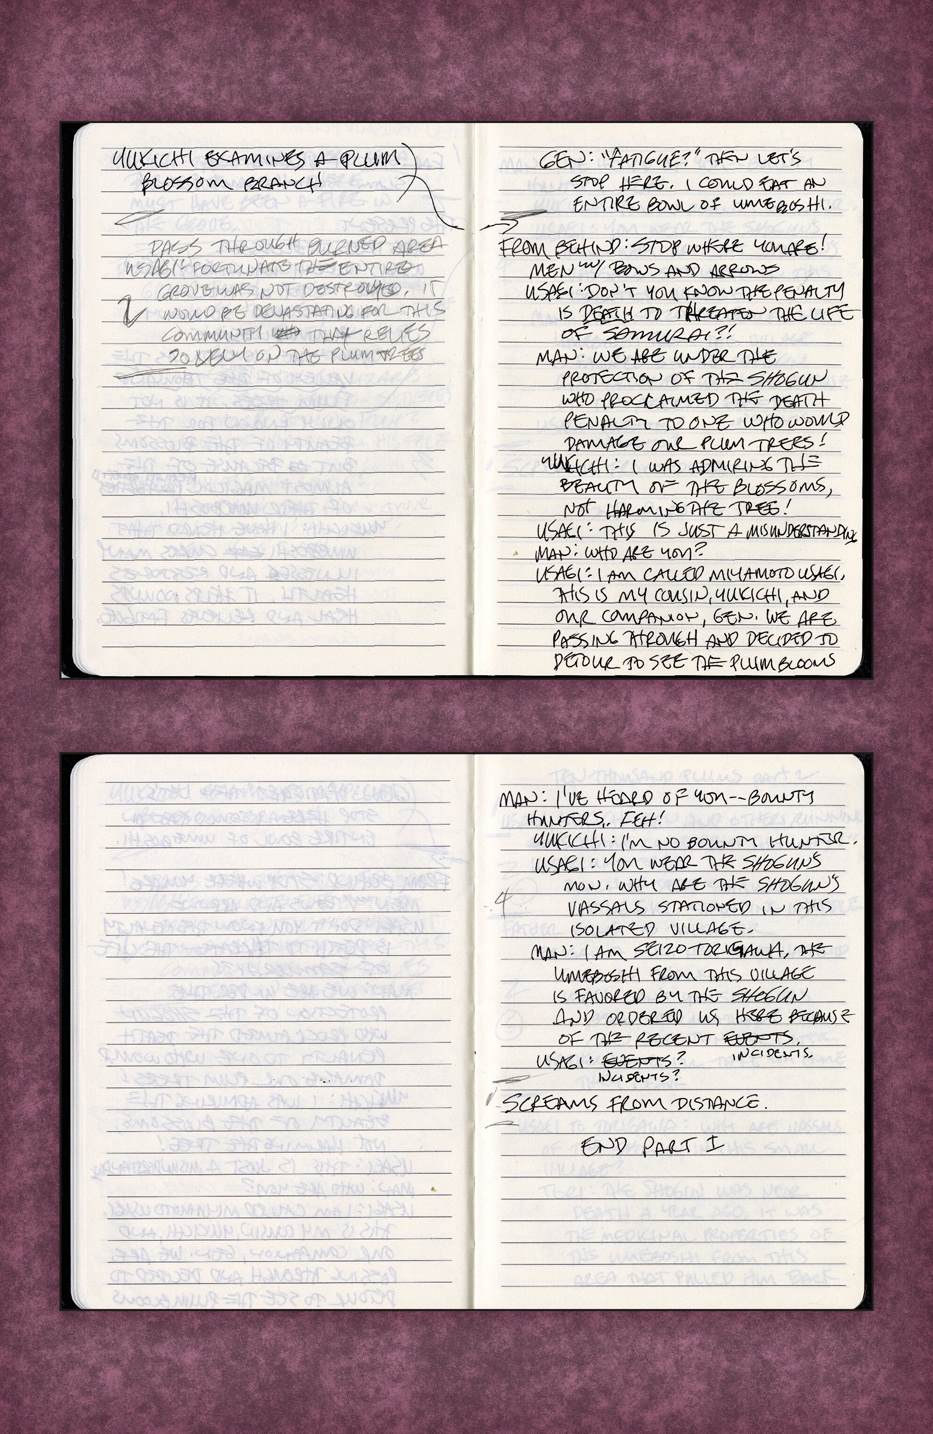 YUKICHI EXAMINES A PLUM
BLOSSOM BRANCH
PASS THROUGH BURNED AREA
USAGI: FORTUNATE THE ENTIRE
GROVE WAS NOT DESTROYED. IT
2 WOULD BE DEVASTATING FOR THIS
COMMUNITY THAT RELIES
SO MUCH ON THE PLUM TREES
GEN: "FATIGUE?" THEN LET'S
STOP HERE. I COULD EAT AN
ENTIRE BOWL OF UMEBOSHI.
FROM BEHIND: STOP WHERE YOU ARE!
MEN W/ BOWS AND ARROWS
USAGI: DON'T YOU KNOW THE PENALTY
IS DEATH TO THREATEN THE LIFE
OF SAMURAI?!
MAN: WE ARE UNDER THE
PROTECTION OF THE SHOGUN
WHO PROCLAIMED THE DEATH
PENALTY TO ONE WHO WOULD
DAMAGE OUR PLUM TREES!
YUKICHI: I WAS ADMIRING THE
BEAUTY OF THE BLOSSOMS,
NOT HARMING THE TREE!
USAGI: THIS IS JUST A MISUNDERSTANDING
MAN: WHO ARE YOU?
USAGI: I AM CALLED MIYAMOTO USAGI.
THIS IS MY COUSIN, YUKICHI, AND
OUR COMPANION, GEN. WE ARE
PASSING THROUGH AND DECIDED TO
DETOUR TO SEE THE PLUM BLOOMS
MAN: I'VE HEARD OF YOU--BOUNTY
HUNTERS. FEH!
YUKICHI: I'M NO BOUNTY HUNTER.
USAGI: YOU WEAR THE SHOGUN'S
MON. WHY ARE THE SHOGUN'S
4 VASSALS STATIONED IN THIS
ISOLATED VILLAGE.
MAN: I AM SEIZO TORIGAWA, THE
UMEBOSHI FROM THIS VILLAGE
IS FAVORED BY THE SHOGUN
AND ORDERED US HERE BECAUSE
OF THE RECENT EVENTS.
INCIDENTS.
USAGI: EVENTS?
INCIDENTS?
SCREAMS FROM DISTANCE.
END PART I